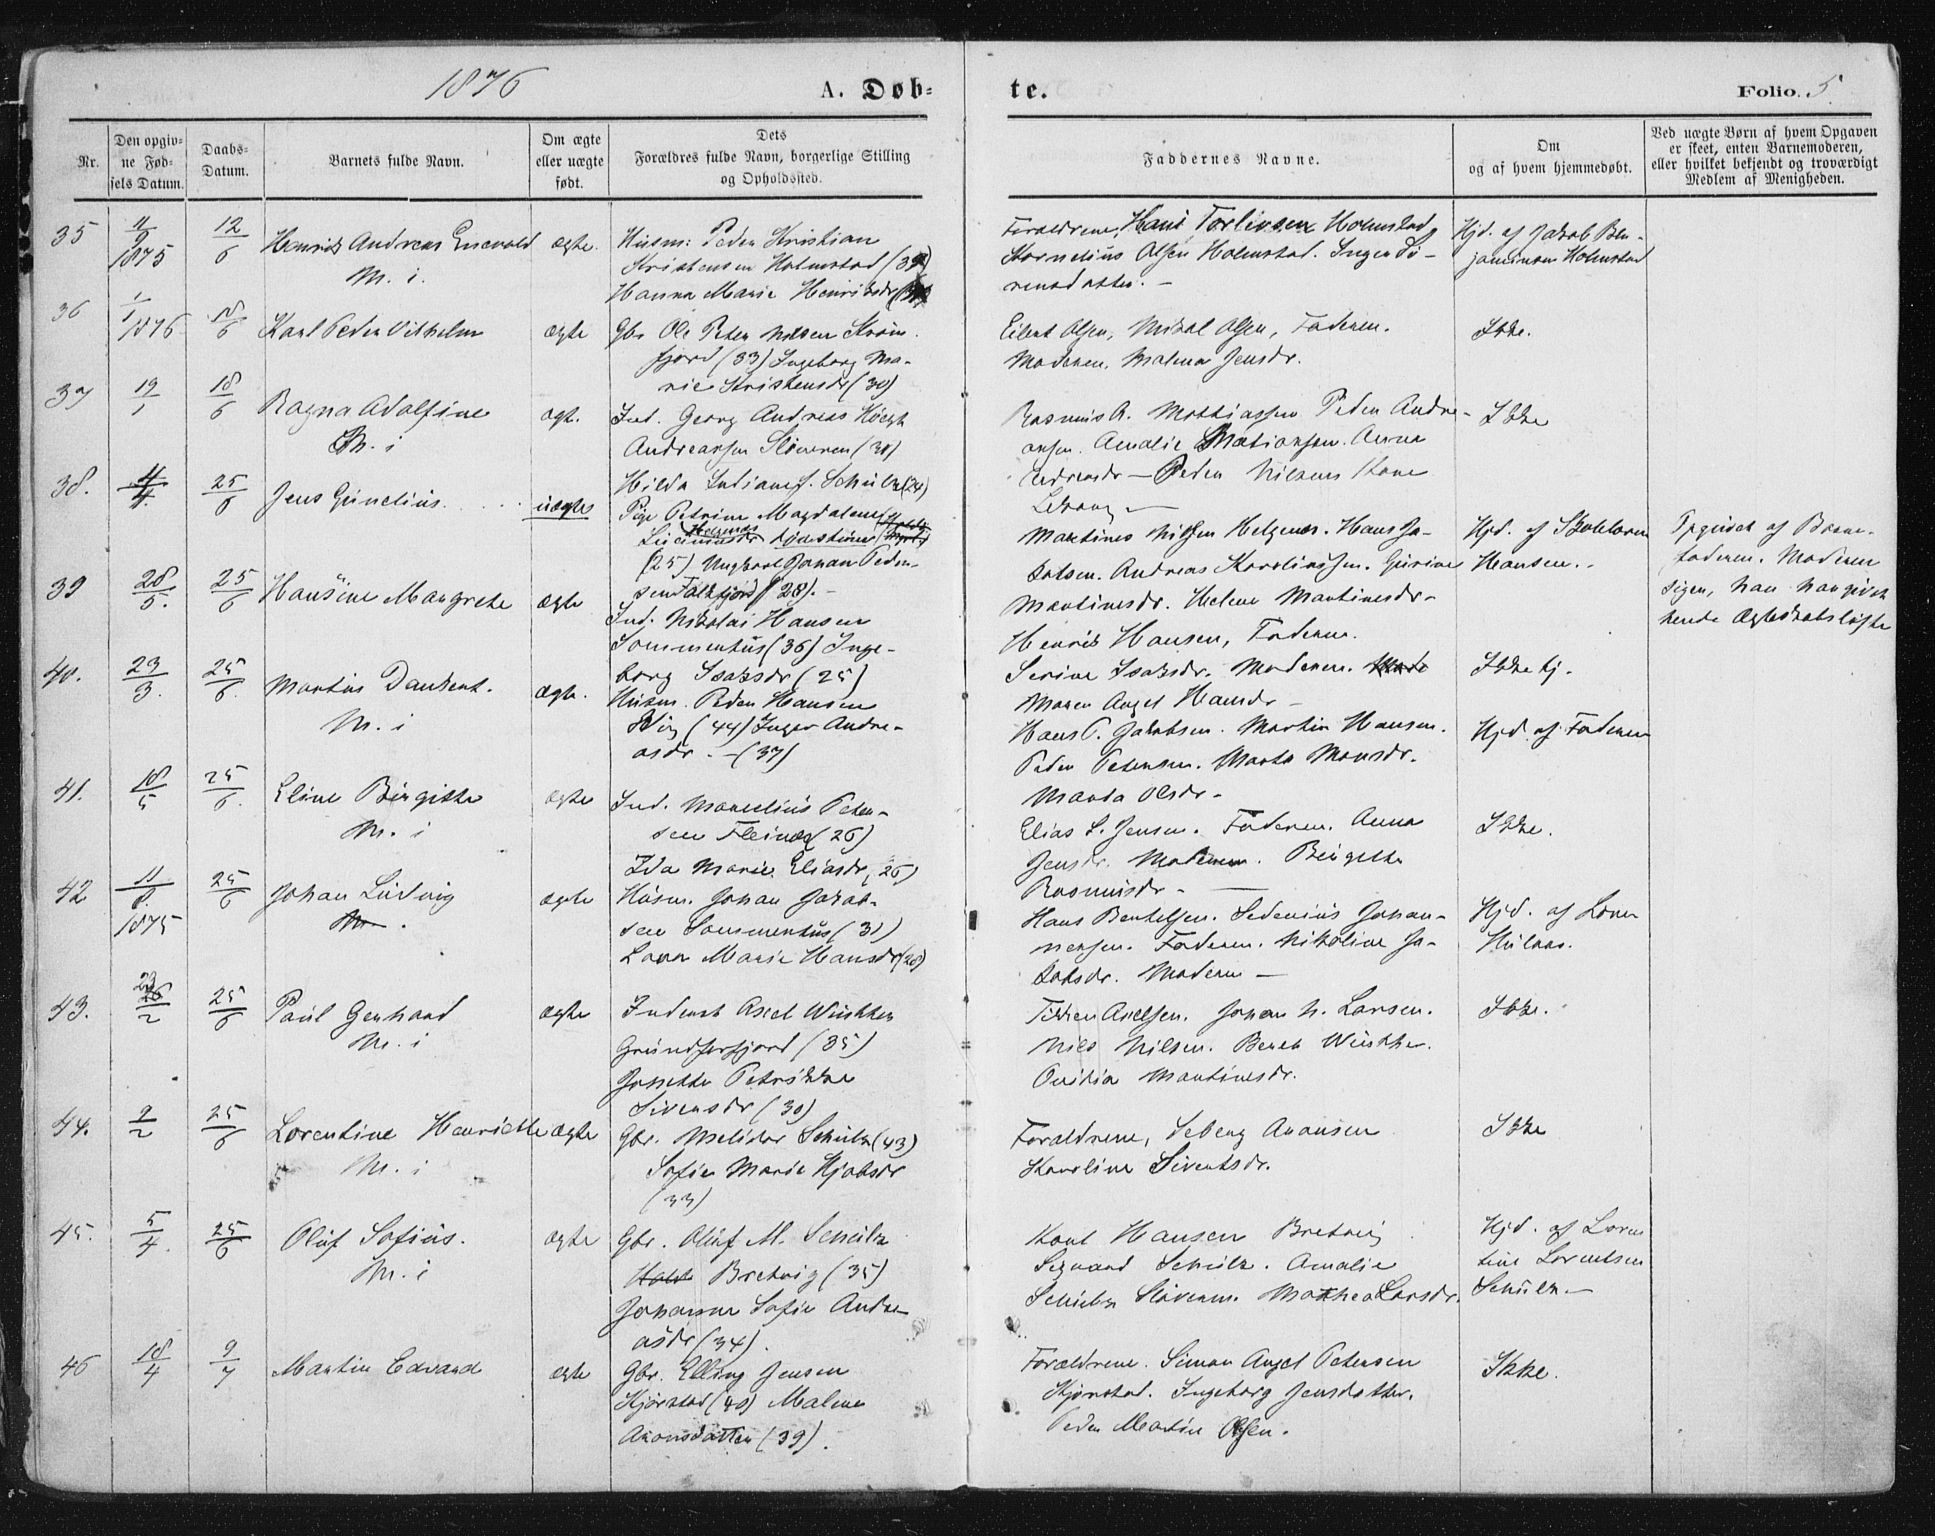 1876
A. Døb-
te.
Folio 5.
Nr.
Den opgiv-
ne Fød-
sels Datum.
Daabs-
Datum.
Barnets fulde Navn.
Om ægte
eller uægte
født.
Dets
Forældres fulde Navn, borgerlige Stilling
og Opholdssted.
Faddernes Navne.
Om
og af hvem hjemmedøbt.
Ved uægte Børn af hvem Opgaven
er skeet, enten Barnemoderen,
eller hvilket bekjendt og troværdigt
Medlem af Menigheden.
35
1875
12/6
Henrik Andreas Enevold
M. i.
ægte.
Husm: Peder Kristian
Kristensen Holmstad
Hanna Marie Henriksdr
Forældrene, Hans Torlivsen Holmstad
Kornelius Olsen Holmstad. Inger Sø-
rensdatter. -
Hjd. af Jakob Ben-
jaminsen Holmstad
36
1876
18/6
Karl Peder Vilhelm
ægte
Gbr Ole Peter Nilsen
fjord (33) Ingeborg Ma-
rie Kristensdr (30)
Eilert Olsen, Mikal Olsen, Faderen.
Moderen, Malena Jensdr.
Ikke.
37
19/1
18/6
Ragna Adolfine
M. i
ægt.
Ind. Georg Andreas Høegh
Andreassen Sløveren (30)
Hilda Schulz (24)
Rasmus A. Mathiassen Peder Andre-
asen. Amalie Mathiassen. Anna
Andreasdr - Peder Nilsens Kone
Ikke
38.
25/6
Jens Gunelius.
uægte
Pige Petrine Magdalene
(25) Ungkarl Johan Peder-
sen Falkfjord (28). -
Martines Nilsen Helgenes. Hans Ja-
kobsen. Andreas Karolinssen. Gurine
Martinesdr. Helene Martinesdr -
Hjd. af Skolelærer
Hansen.
Opgivet af Barne-
faderen. Moderen
siger, han har givet
hende Ægteskabsløfte
39
28/5.
25/6
Hansine Margrete
ægte
Ind. Nikolai Hansen
Sommenhus (36) Inge-
borg Isaksdr (25)
Henrik Hansen, Faderen.
Serine Isaksdr. Moderen.
Maren Angel Hansdr -
Ikke hj.
40.
23/3.
25/6.
Martin
M. i
ægte.
Husm. Peder Hansen
(44) Inger Andre-
asdr. - (37)
Hans P. Jakobsen. Martin Hansen.
Peder Petersen. Marta Monsdr.
Marta Olsdr -
Hjd. af Faderen
41.
18/5
25/6.
Eline Birgitte
M. i
ægte
Ind. Marselius Peter-
sen Fleinæs (26)
Ida Marie Eliasdr, 26)
Elias S. Jensen. Faderen. Anna
Jensdr. Moderen. Birgitte
Rasmusdr -
Ikke.
42
11/8.
1875
25/6
Johan Ludvig
M.
ægte
Husm. Johan Jakob-
sen Sommenhus (31)
Lava Marie Hansdr (28)
Hans Bertelsen. Sedenius Johan-
nessen. Faderen. Nikoline Ja-
kobsdr. Moderen -
Hjd. af
43.
25/6
Paul Gerhard
M. i
ægte
Inderst Axel Winther
Grundforfjord (35)
Jonette Petrikke
Sivensdr (30)
Axelsen. Johan N. Larsen.
Nils Nilsen. Berit Winther.
Ovidia Martinesdr.
Ikke.
44.
9/2
25/6
Lorentine Henriette
M. i
ægte
Gbr. Melidor Schulz (43)
Sofie Marie
(33)
Forældrene, Seberg Aronsen
Karoline Sivertsdr.
Ikke
45.
5/4.
25/6
Oluf Sofius.
M. i
ægte
Gbr. Oluf M. Schulz
Bretvig (35)
Johanna Sofie Andre-
asdr (34).
Karl Hansen Bretvig
Sigvard Schulz. Amalie
Schulz Sløveren. Mathea Larsdr.
Hjd. af Loren
tine Lorentsen
Schulz. -
46
18/4
9/7
Martin Edvard
ægte
Gbr. Elling Jensen
Kjørstad (40) Malene
Aronsdatter (39).
Forældrene. Simon Angel Petersen
Kjørstad. Ingeborg Jensdatter.
Peder Martin Olsen.
Ikke.